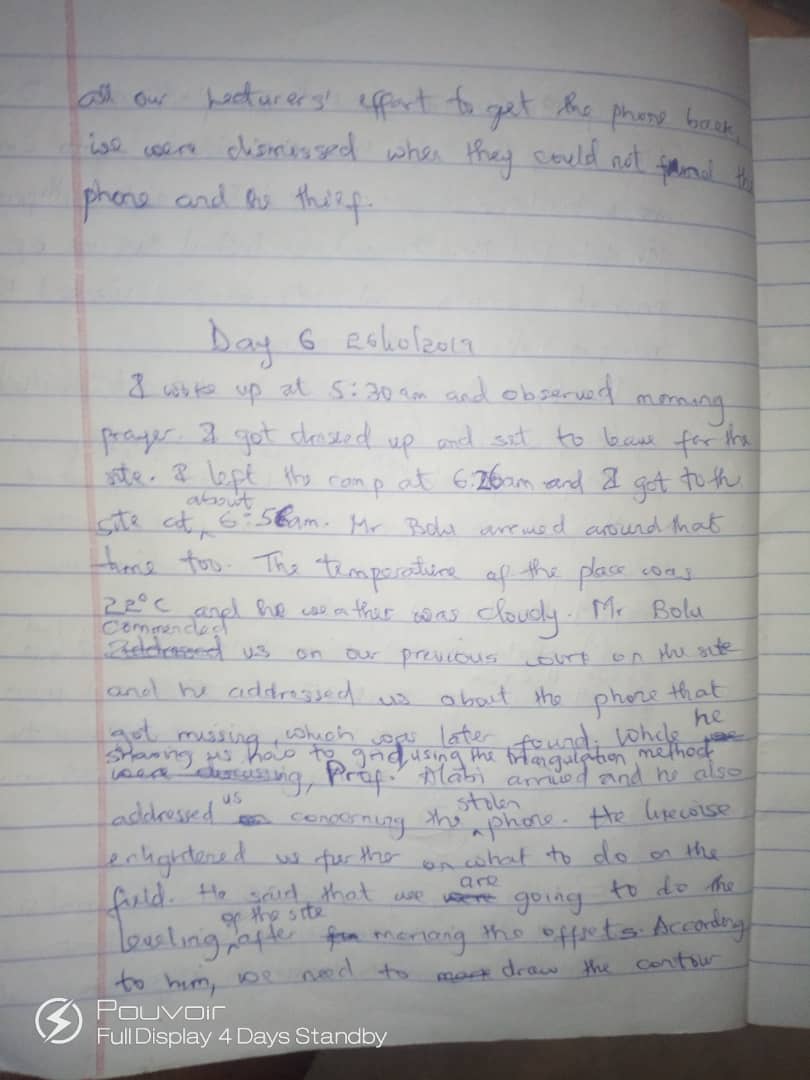 all our Lecturers' effort to get the phone back,
we were dismissed when they could not found the
phone and the thief.
Day 6 26/10/2019
I woke up at 5:30am and observed morning
prayer. I got dressed up and set to leave for the
site. I left the camp at 6.26am and I got to th
about
site at 6:56am. Mr Bolu arrived around that
time too. The temperature of the place was
22°C and he weather was cloudy. Mr Bolu
Commended
Addressed us on our previous work on the site
and he addressed us about the phone that
got missing, which was later found. While he
sharing us how to grid using the triangulation method
were discussing, Prof. Alabi arrived and he also
us stolen
addressed concerning the phone. He likewise
enlightened us further on what to do on the
are
field. He said that we were going to do the
of the site
leveling, after the offsets. According
to him, we need to draw the contour
Pouvoir
Full Display 4 Days Standby